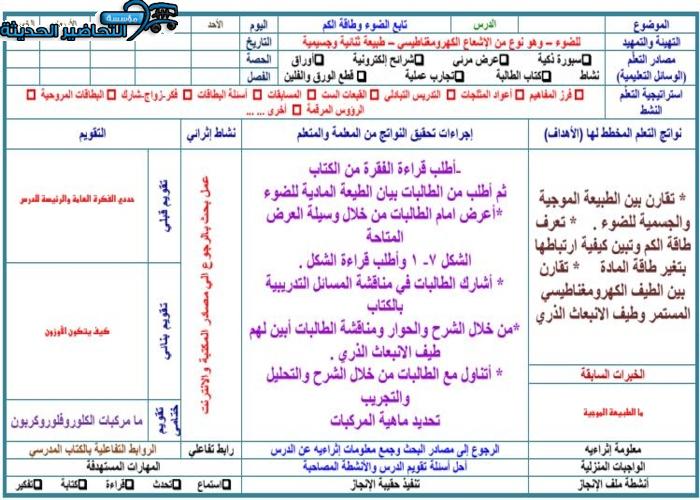 مؤسسة
التحاضير الحديثة
الموضوع
الدرس
تابع الضوء وطاقة الكم
اليوم
الأحد
التهيئة والتمهيد
للضوء – وهو نوع من الإشعاع الكهرومغناطيسي – طبيعة ثنائية وجسيمية
التاريخ
مصادر التعلم
(الوسائل التعليمية)
سبورة ذكية
عرض مرئي
شرائح إلكترونية
أوراق
نشاط
كتاب الطالبة
تجارب عملية
قطع الورق والفلين
الحصة
الفصل
استراتيجية التعلم
النشط
فرز المفاهيم
أعواد المثلجات
التدريس التبادلي
القبعات الست
المسابقات
أسئلة البطاقات
فكر-زواج-شارك
البطاقات المروحية
الرؤوس المرقمة
أخرى ... ...
نواتج التعلم المخطط لها (الأهداف)
إجراءات تحقيق النواتج من المعلمة والمتعلم
نشاط إثرائي
التقويم
* تقارن بين الطبيعة الموجية
والجسمية للضوء . * تعرف
طاقة الكم وتبين كيفية ارتباطها
بتغير طاقة المادة * تقارن
بين الطيف الكهرومغناطيسي
المستمر وطيف الانبعاث الذري
الخبرات السابقة
ما الطبيعة الموجية
-أطلب قراءة الفقرة من الكتاب
ثم أطلب من الطالبات بيان الطيعة المادية للضوء
*أعرض امام الطالبات من خلال وسيلة العرض
المتاحة
الشكل ٧- ١ وأطلب قراءة الشكل .
* أشارك الطالبات في مناقشة المسائل التدريبية
بالكتاب
*من خلال الشرح والحوار ومناقشة الطالبات أبين لهم
طيف الانبعاث الذري .
* أتناول مع الطالبات من خلال الشرح والتحليل
والتجريب
تحديد ماهية المركبات
عمل بحث بالرجوع الي مصادر المكتبة والانترنت
تقويم قبلي
حددي الفكرة العامة والرئيسة للدرس
تقويم بنائي
كيف يتكون الأوزون
تقويم
ختامي
ما مركبات الكلوروفلوروكربون
معلومة إثرائيه
الرجوع إلى مصادر البحث وجمع معلومات إثراءيه عن الدرس
رابط تفاعلي
الروابط التفاعلية بالكتاب المدرسي
الواجبات المنزلية
أحل أسئلة تقويم الدرس والأنشطة المصاحبة
المهارات المستهدفة
أنشطة ملف الإنجاز
تنفيذ حقيبة الإنجاز
استماع
تحدث
قراءة
كتابة
تفكير